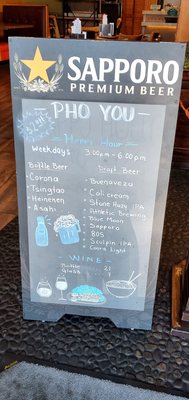 SAPPORO
PREMIUM BEER
- PHO YOU -
Happy Hour
Weekdays 3:00pm - 6:00pm
Bottle Beer
Draft Beer
• Corona
• Tsingtao
• Heineken
• Asahi
• Buenaveza
• Cali cream
• Stone Hazy IPA
• Athletic Brewing
• Blue Moon
• Sapporo
• 805
• Sculpin IPA
• Coors Light
- WINE -
Bottle 21
Glass 7